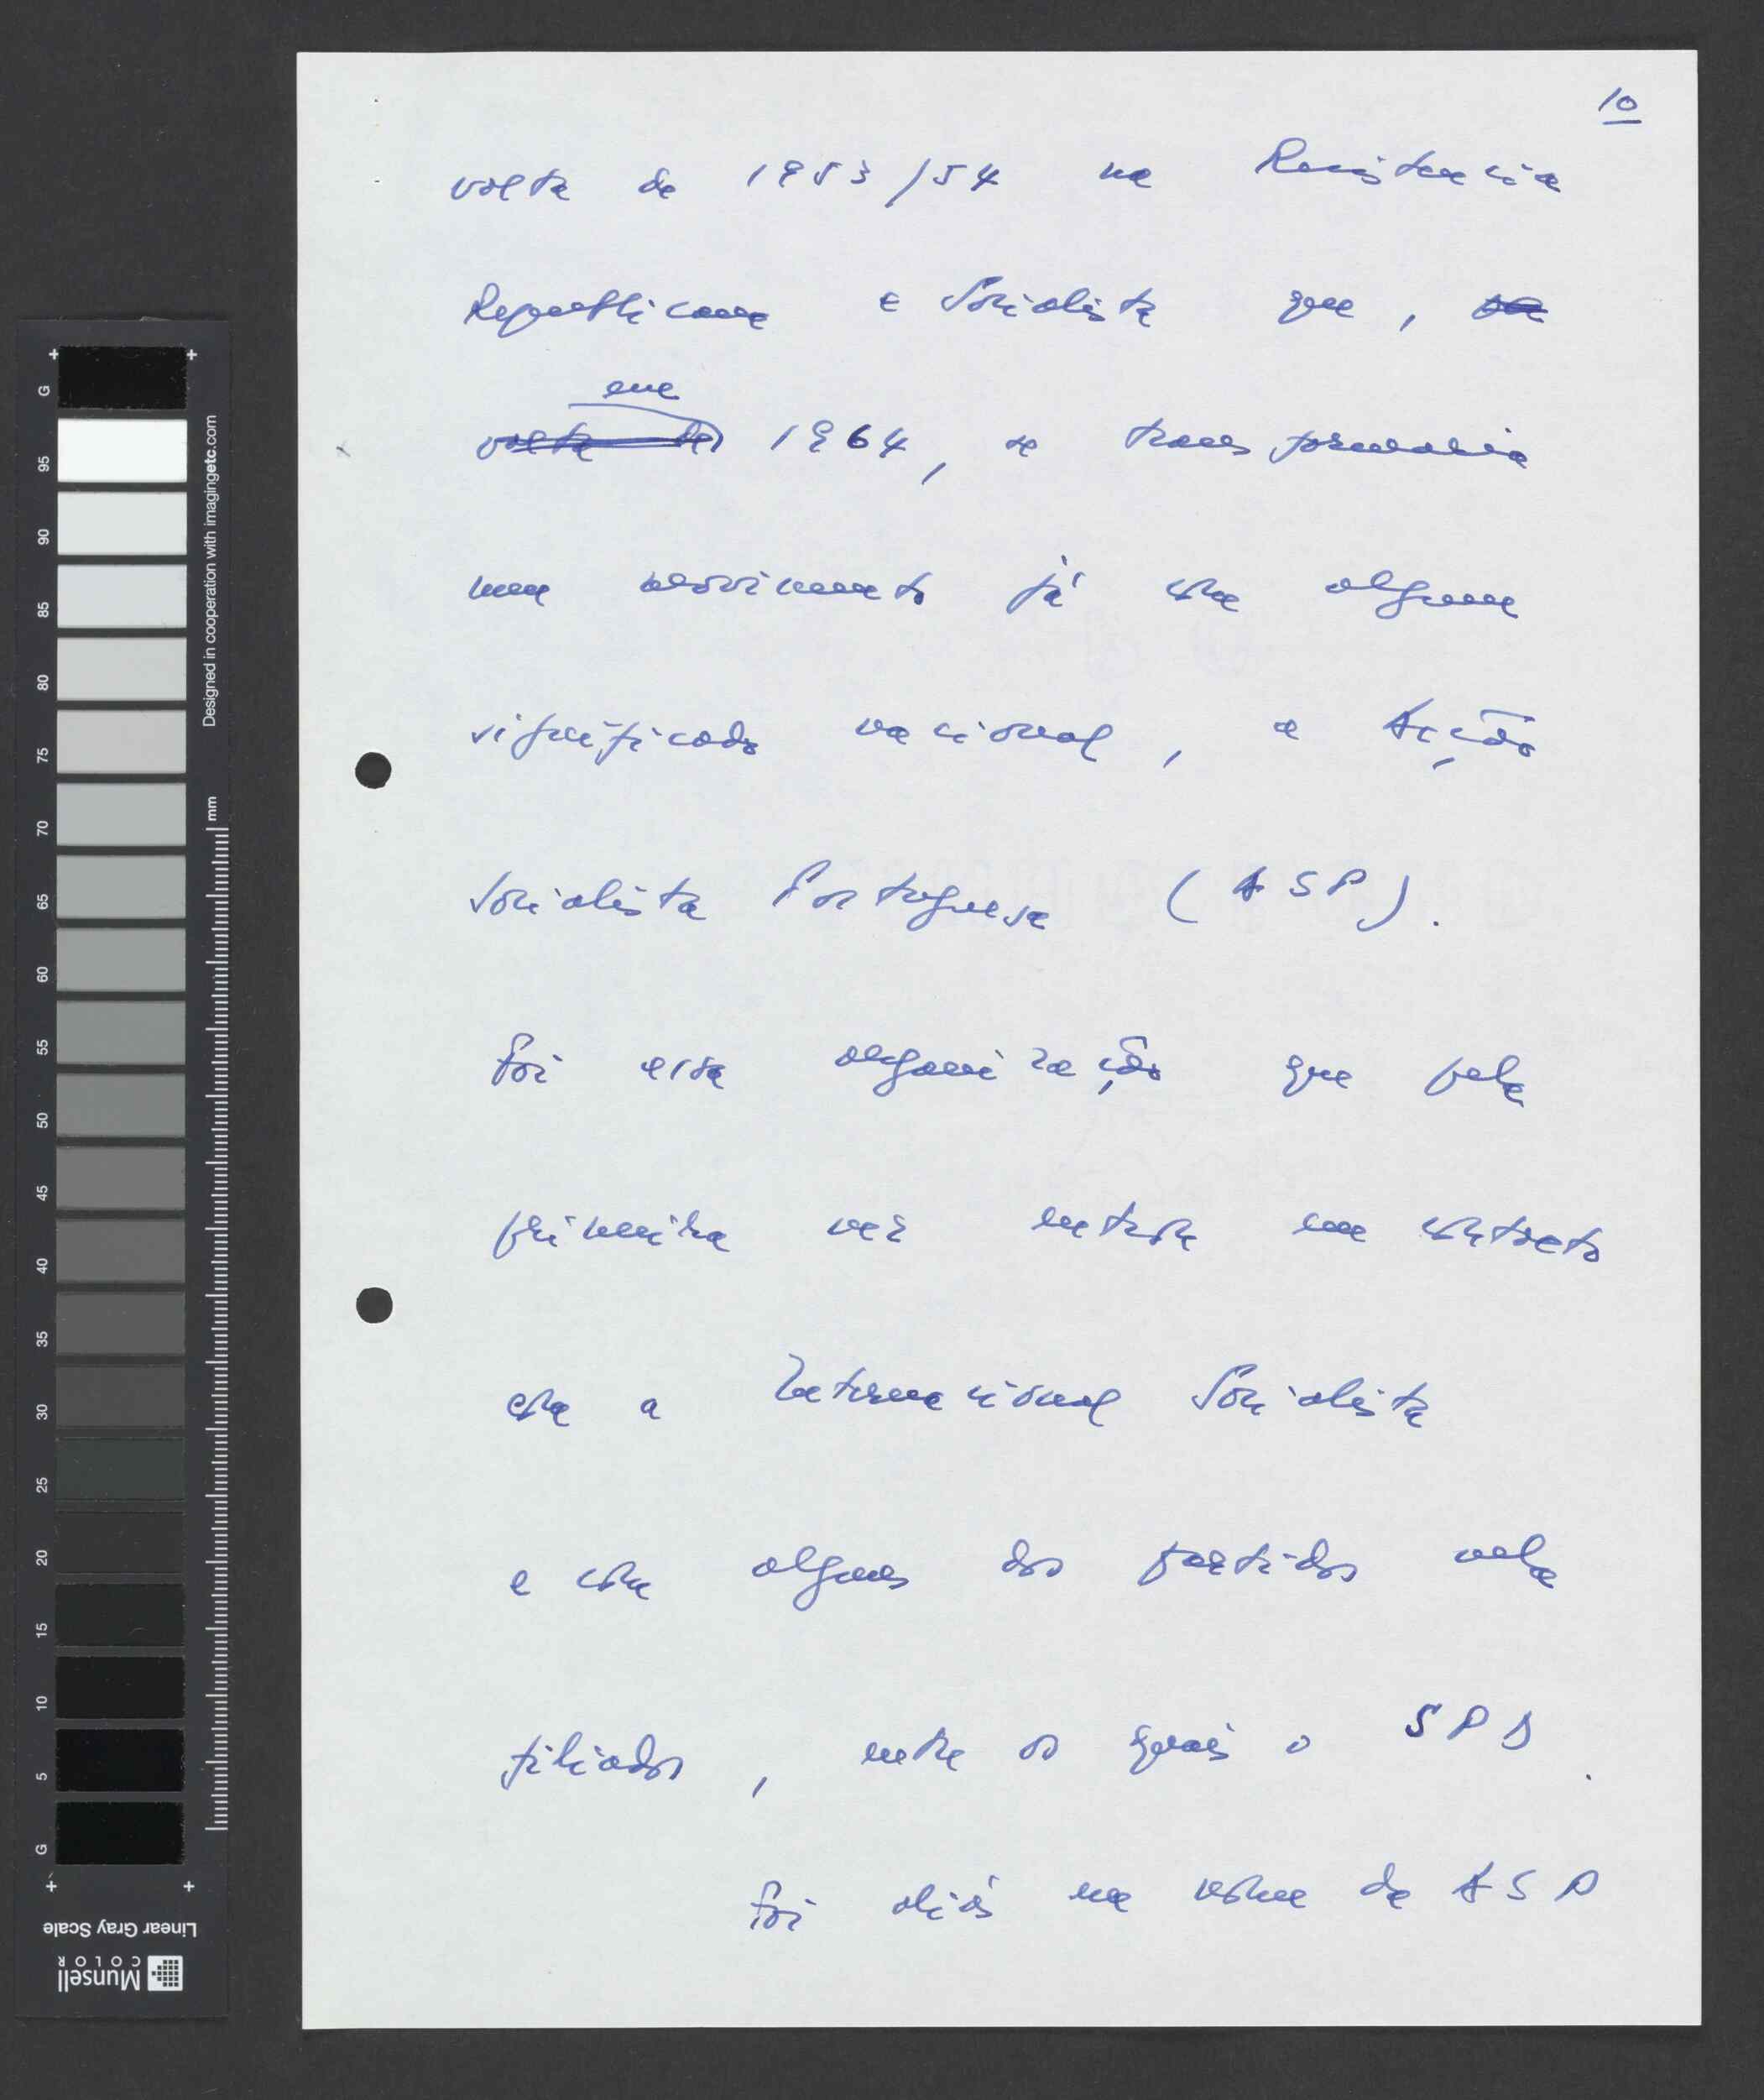 10
volta de 1953/54 na Resistencia
Republicana e Socialista que,
em
volta de 1964, se transformaria
num movimento já com algum
significado nacional, a Acção
Socialista Portuguesa (ASP).
Foi essa organização que pela
primeira vez entrou em contacto
com a Internacional Socialista
e com alguns dos partidos nela
filiados, entre os quais o SPD.
Foi aliás em nome da ASP
G
95
90
85
80
75
70
65
60
55
50
45
40
35
30
25
20
15
10
5
G
Designed in cooperation with imagingetc.com
mm
Linear Gray Scale
Munsell
COLOR